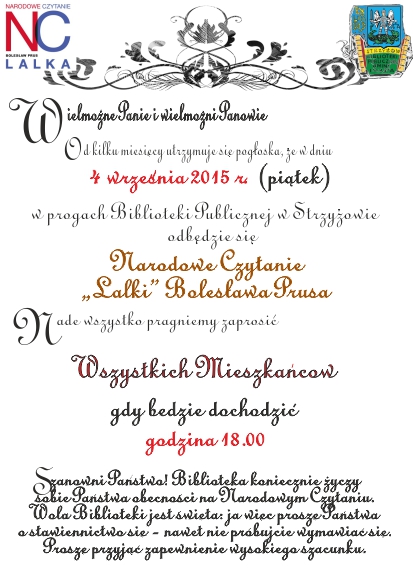 NARODOWE CZYTANIE
NC
BOLESŁAW PRUS
LALKA
Wielmożne Panie i wielmożni Panowie
Od kilku miesięcy utrzymuje się pogłoska, że w dniu
4 września 2015 r. (piątek)
w progach Biblioteki Publicznej w Strzyżowie
odbędzie się
Narodowe Czytanie
„Lalki” Bolesława Prusa
Nade wszystko pragniemy zaprosić
Wszystkich Mieszkańcow
gdy bedzie dochodzić
godzina 18.00
Szanowni Państwo! Biblioteka koniecznie życzy
sobie Państwa obecności na Narodowym Czytaniu.
Wola Biblioteki jest święta: ja więc prosze Państwa
o stawiennictwo się - nawet nie próbujcie wymawiać się.
Prosze przyjąć zapewnienie wysokiego szacunku.